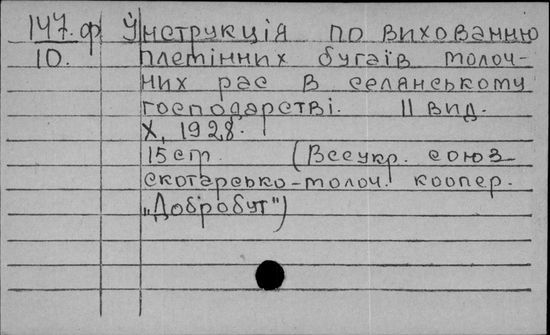 147.ф Інструкція по вихованню
10. племінних бугаїв молоч-
них рас в селянському
господарстві. II вид.
Х, 1928.
15 стр. (Всеукр. союз
скотарсько-молоч. коопер.
„Добробут")